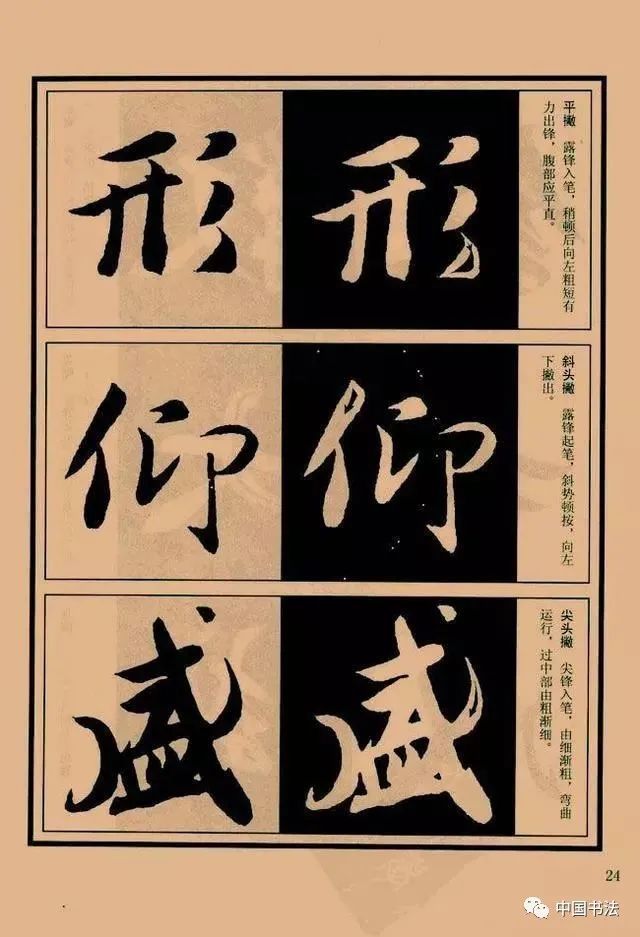 形 形
平撇 露锋入笔，稍顿后向左粗短有
力出锋，腹部应平直。
仰 仰
斜头撇 露锋起笔，斜势顿按，向左
下撇出。
盛 盛
尖头撇 尖锋入笔，由细渐粗，弯曲
运行，过中部由粗渐细。
24
中国书法